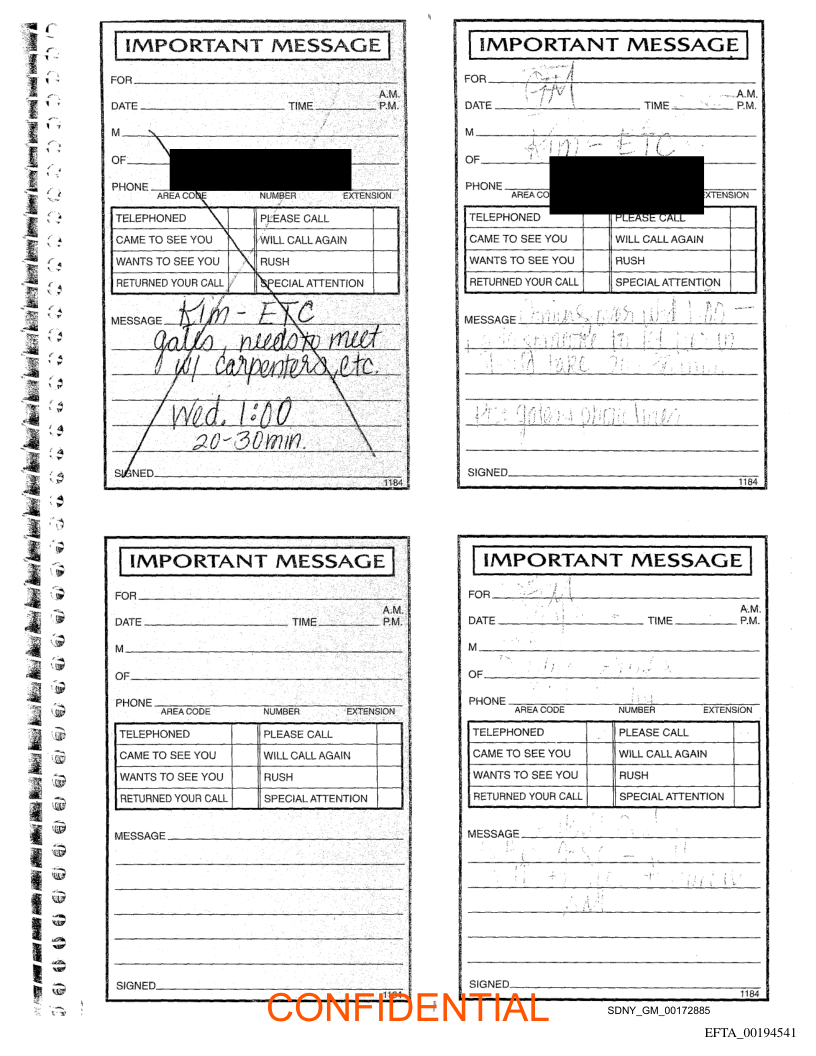 IMPORTANT MESSAGE
FOR
A.M.
DATE TIME P.M.
M
OF
PHONE
AREA CODE NUMBER EXTENSION
TELEPHONED PLEASE CALL
CAME TO SEE YOU WILL CALL AGAIN
WANTS TO SEE YOU RUSH
RETURNED YOUR CALL SPECIAL ATTENTION
MESSAGE Kim - ETC
gates, needs to meet
w/ carpenters, etc.
Wed. 1:00
20-30 min.
SIGNED
1184
IMPORTANT MESSAGE
FOR GM
A.M.
DATE TIME P.M.
M
Kim - ETC
OF
PHONE
AREA CO EXTENSION
TELEPHONED PLEASE CALL
CAME TO SEE YOU WILL CALL AGAIN
WANTS TO SEE YOU RUSH
RETURNED YOUR CALL SPECIAL ATTENTION
MESSAGE Coming over wed 1:00 -
to let her in
take
gates phone lines
SIGNED
1184
IMPORTANT MESSAGE
FOR
A.M.
DATE TIME P.M.
M
OF
PHONE
AREA CODE NUMBER EXTENSION
TELEPHONED PLEASE CALL
CAME TO SEE YOU WILL CALL AGAIN
WANTS TO SEE YOU RUSH
RETURNED YOUR CALL SPECIAL ATTENTION
MESSAGE
SIGNED
1184
IMPORTANT MESSAGE
FOR
A.M.
DATE TIME P.M.
M
OF
PHONE
AREA CODE NUMBER EXTENSION
TELEPHONED PLEASE CALL
CAME TO SEE YOU WILL CALL AGAIN
WANTS TO SEE YOU RUSH
RETURNED YOUR CALL SPECIAL ATTENTION
MESSAGE
SIGNED
1184
CONFIDENTIAL
SDNY_GM_00172885
EFTA_00194541